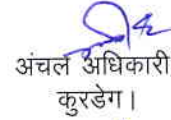 अंचल अधिकारी
कुरडेग।